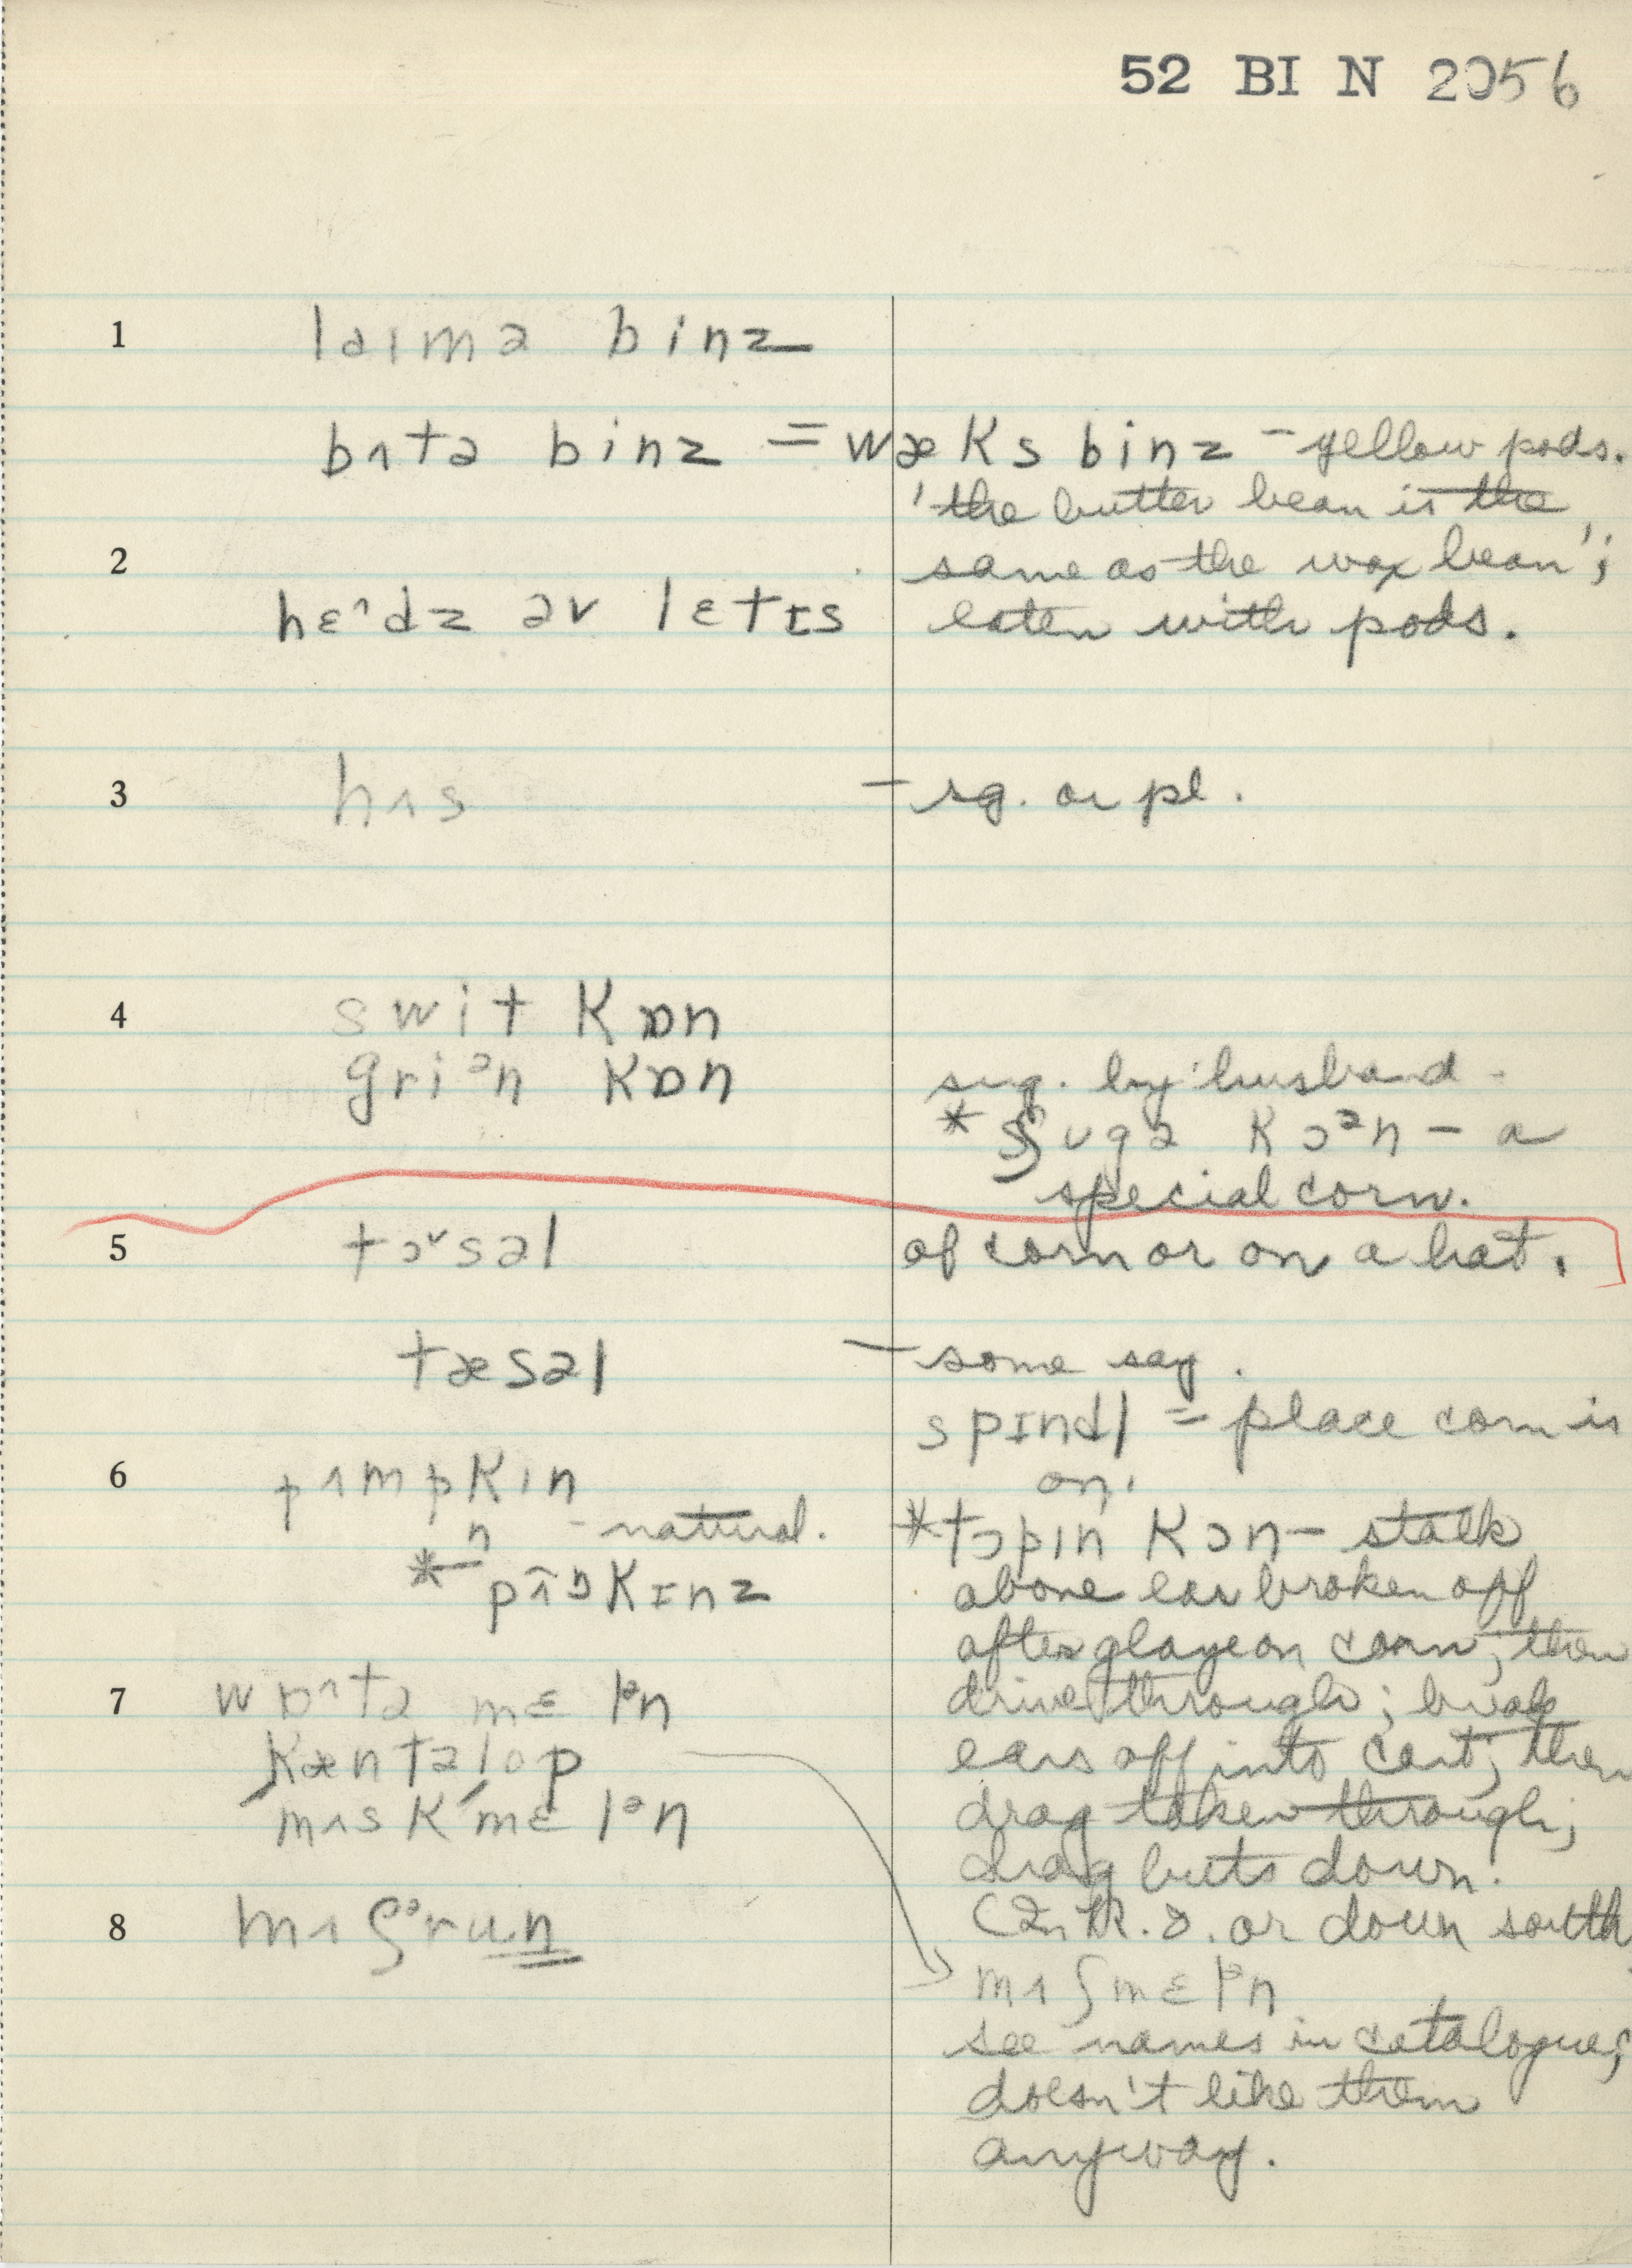 52 BI N 2056
1 laɪmə binz
bʌtə binz = wæks binz - yellow pods.
'the butter bean is the
2 same as the wax bean';
hɛ^dz əv lɛtɪs eaten with pods.
3 hʌs - sg. or pl.
4 swit kɒn
griᵊn kɒn sug. by husband -
* ʃugə kɔᵊn - a
special corn.
5 tɔ˅səl of corn or on a hat.
tæsəl - some say.
spɪndl = place corn is
6 pʌmpkin on.
n - natural. *tɔpin kɔn - stalk
* pʌ̃ŋkɪnz above ear broken off
after glaze on corn; then
7 wɒ^tə mɛlᵊn drive through; break
kæntəlop ears off into cart; then
mʌskmɛlᵊn drag taken through;
drag buts down.
8 mʌʃᵊrun (In R.I. or down south
mʌʃmɛlᵊn
see names in catalogue;
doesn't like them
anyway.